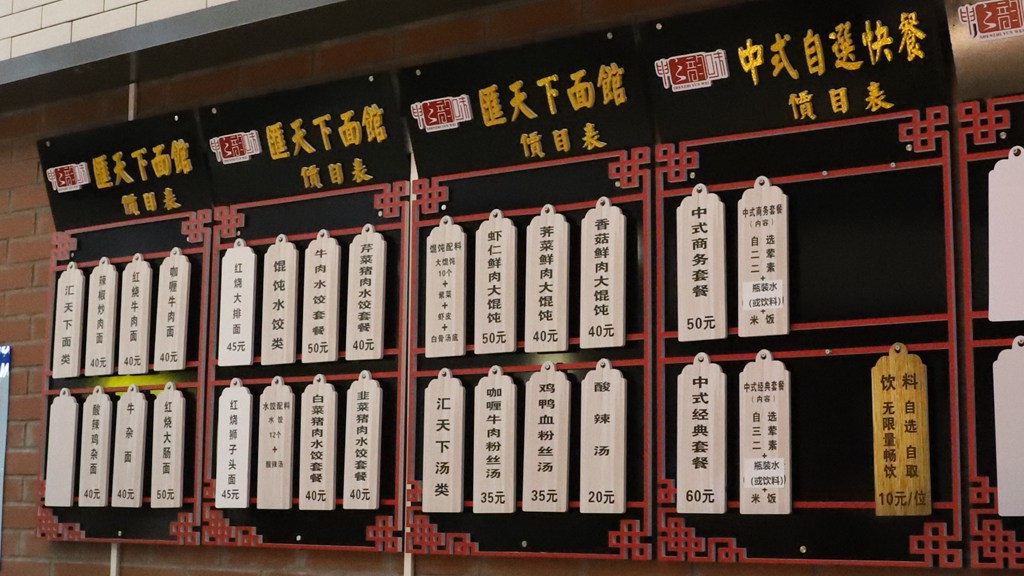 匯天下面館
價目表
汇天下面类
辣椒炒肉面
40元
红烧牛肉面
40元
咖喱牛肉面
40元
酸辣鸡杂面
40元
牛杂面
40元
红烧大肠面
50元
匯天下面館
價目表
红烧大排面
45元
馄饨水饺类
牛肉水饺套餐
50元
芹菜猪肉水饺套餐
40元
红烧狮子头面
45元
水饺配料
水饺
12个
+
酸辣汤
白菜猪肉水饺套餐
40元
韭菜猪肉水饺套餐
40元
匯天下面館
價目表
馄饨配料
大馄饨
10个
+
紫菜
+
虾皮
+
白骨汤底
虾仁鲜肉大馄饨
50元
荠菜鲜肉大馄饨
40元
香菇鲜肉大馄饨
40元
汇天下汤类
咖喱牛肉粉丝汤
35元
鸡鸭血粉丝汤
35元
酸辣汤
20元
中式自選快餐
價目表
中式商务套餐
50元
中式商务套餐
(内容)
自选
二荤
二素
+
瓶装水
(或饮料)
+
米饭
中式经典套餐
60元
中式经典套餐
(内容)
自选
三荤
二素
+
瓶装水
(或饮料)
+
米饭
饮料
自选自取
无限量畅饮
10元/位